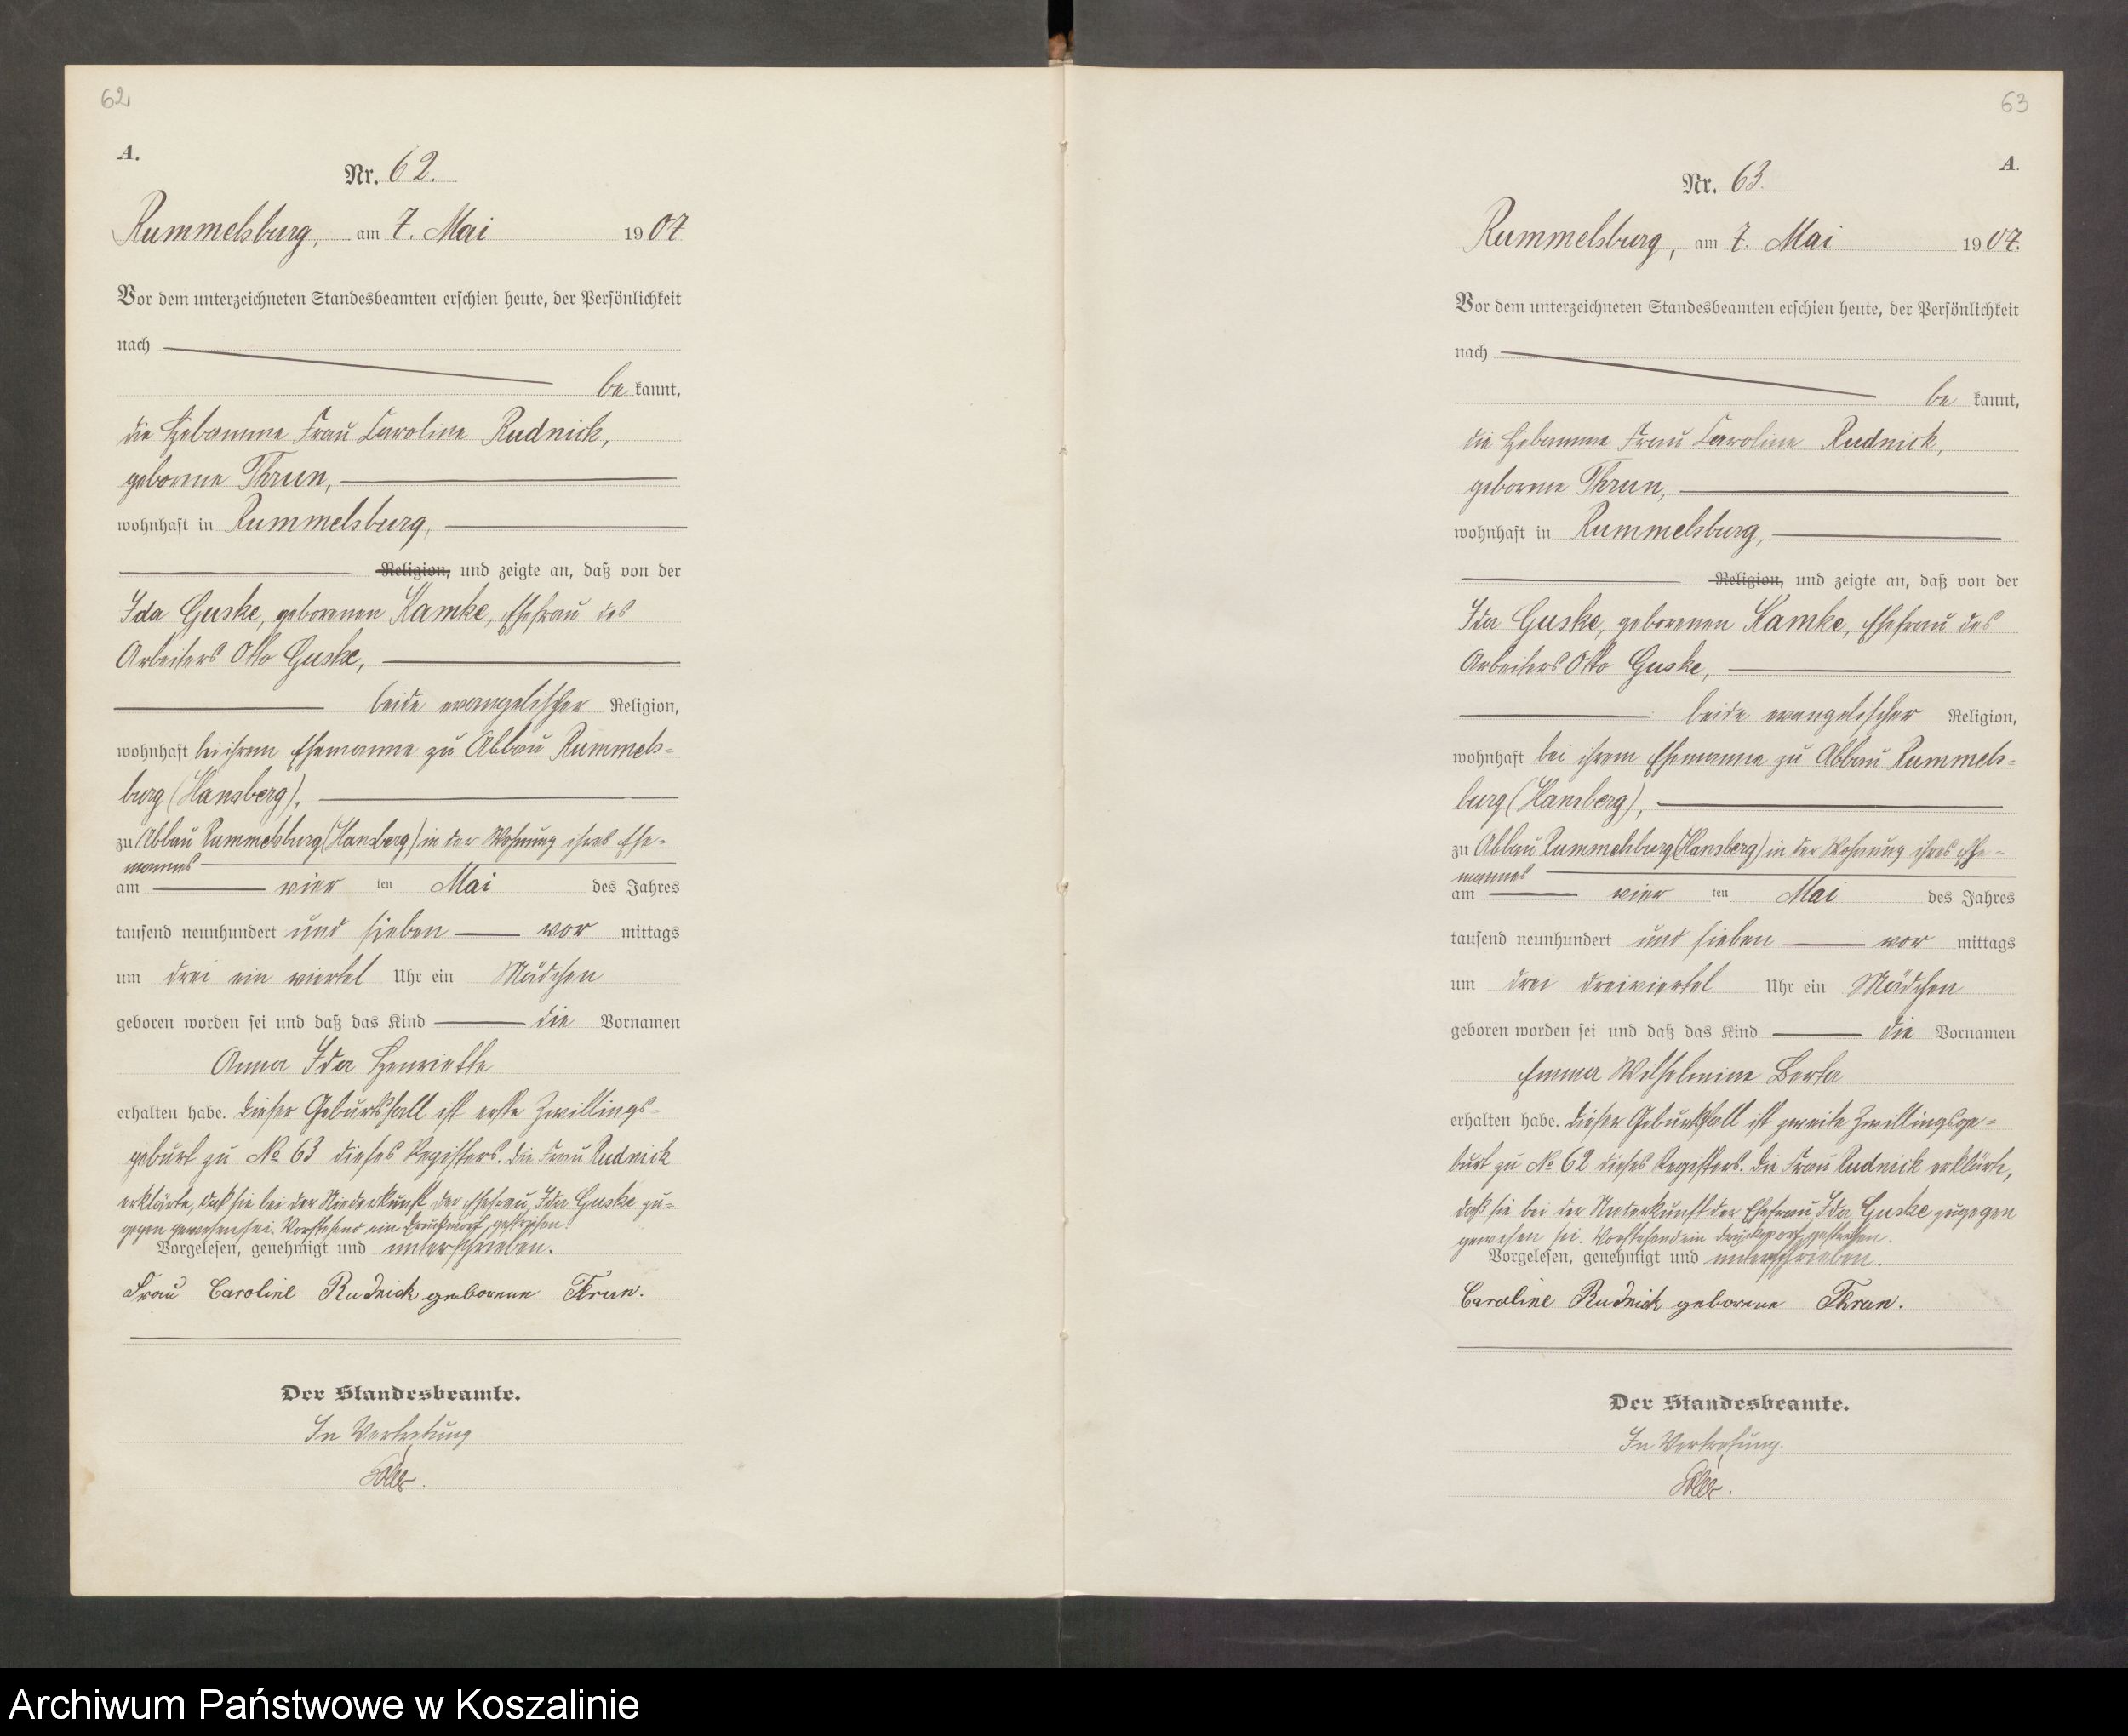 62
A.
Nr. 62.
Rummelsburg, am 7. Mai 1907
Vor dem unterzeichneten Standesbeamten erschien heute, der Persönlichkeit
nach
be kannt,
die Hebamme Frau Caroline Rudnick,
geborene Thrun,
wohnhaft in Rummelsburg,
Religion, und zeigte an, daß von der
Ida Guske, geborenen Kamke, Ehefrau des
Arbeiters Otto Guske,
beide evangelischer Religion,
wohnhaft bei ihrem Ehemanne zu Abbau Rummels-
burg (Hansberg),
zu Abbau Rummelsburg (Hansberg) in der Wohnung ihres Ehe-
mannes
am vier ten Mai des Jahres
tausend neunhundert und sieben vor mittags
um drei ein viertel Uhr ein Mädchen
geboren worden sei und daß das Kind die Vornamen
Anna Ida Henriette
erhalten habe. Dieser Geburtsfall ist erste Zwillings-
geburt zu No 63 dieses Registers. Die Frau Rudnick
erklärte, daß sie bei der Niederkunft der Ehefrau Ida Guske zu-
gegen gewesen sei. Vorstehend ein Druckwort gestrichen.
Vorgelesen, genehmigt und unterschrieben.
Frau Caroline Rudnick geborene Thrun.
Der Standesbeamte.
In Vertretung
63
A.
Nr. 63.
Rummelsburg, am 7. Mai 1907.
Vor dem unterzeichneten Standesbeamten erschien heute, der Persönlichkeit
nach
be kannt,
die Hebamme Frau Caroline Rudnick,
geborene Thrun,
wohnhaft in Rummelsburg,
Religion, und zeigte an, daß von der
Ida Guske, geborenen Kamke, Ehefrau des
Arbeiters Otto Guske,
beide evangelischer Religion,
wohnhaft bei ihrem Ehemanne zu Abbau Rummels-
burg (Hansberg),
zu Abbau Rummelsburg (Hansberg) in der Wohnung ihres Ehe-
mannes
am vier ten Mai des Jahres
tausend neunhundert und sieben vor mittags
um drei dreiviertel Uhr ein Mädchen
geboren worden sei und daß das Kind die Vornamen
Emma Wilhelmine Berta
erhalten habe. Dieser Geburtsfall ist zweite Zwillingsge-
burt zu No 62 dieses Registers. Die Frau Rudnick erklärte,
daß sie bei der Niederkunft der Ehefrau Ida Guske zugegen
gewesen sei. Vorstehend ein Druckwort gestrichen.
Vorgelesen, genehmigt und unterschrieben.
Caroline Rudnick geborene Thrun.
Der Standesbeamte.
In Vertretung.
Archiwum Państwowe w Koszalinie